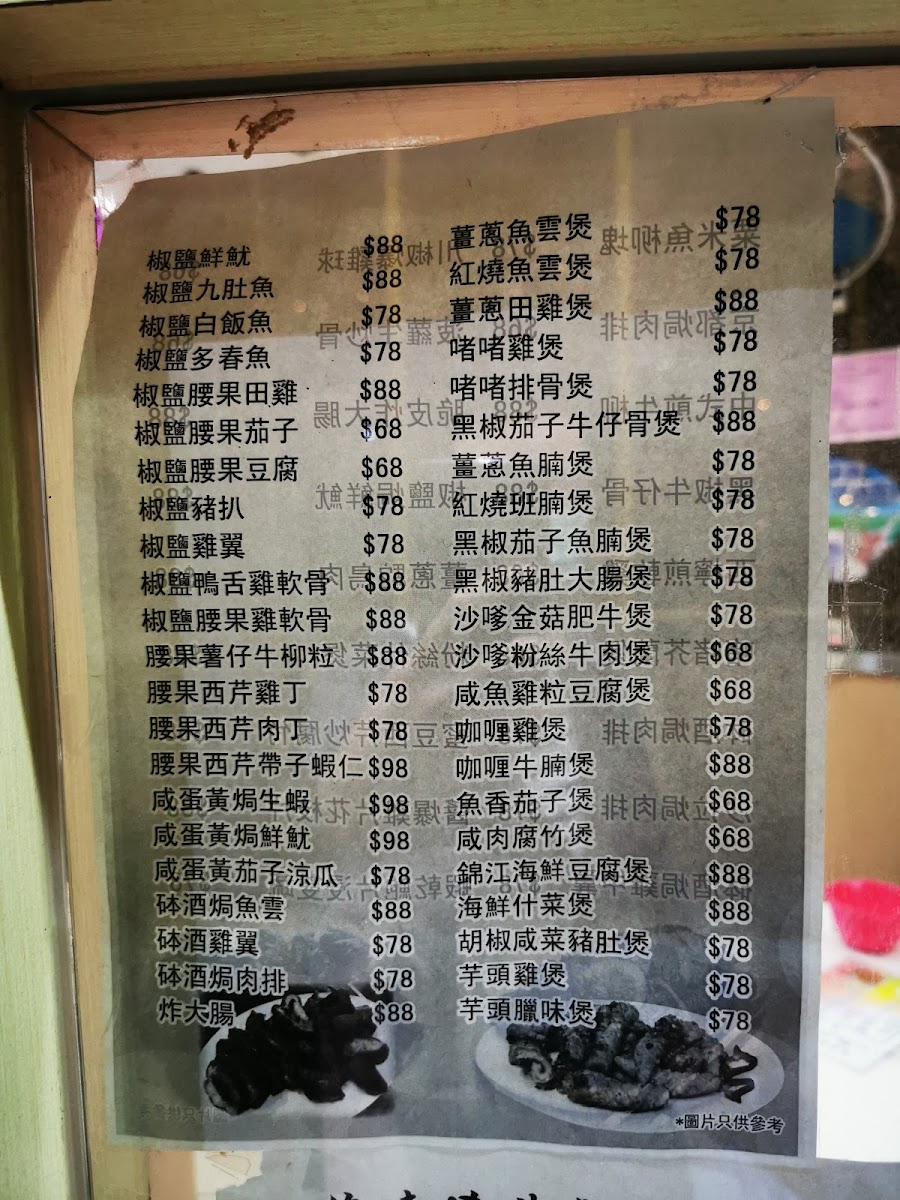 椒鹽鮮魷 $88
椒鹽九肚魚 $88
椒鹽白飯魚 $78
椒鹽多春魚 $78
椒鹽腰果田雞 $88
椒鹽腰果茄子 $68
椒鹽腰果豆腐 $68
椒鹽豬扒 $78
椒鹽雞翼 $78
椒鹽鴨舌雞軟骨 $88
椒鹽腰果雞軟骨 $88
腰果薯仔牛柳粒 $88
腰果西芹雞丁 $78
腰果西芹肉丁 $78
腰果西芹帶子蝦仁 $98
咸蛋黃焗生蝦 $98
咸蛋黃焗鮮魷 $98
咸蛋黃茄子涼瓜 $78
砵酒焗魚雲 $88
砵酒雞翼 $78
砵酒焗肉排 $78
炸大腸 $88
薑蔥魚雲煲 $78
紅燒魚雲煲 $78
薑蔥田雞煲 $88
啫啫雞煲 $78
啫啫排骨煲 $78
黑椒茄子牛仔骨煲 $88
薑蔥魚腩煲 $78
紅燒班腩煲 $78
黑椒茄子魚腩煲 $78
黑椒豬肚大腸煲 $78
沙嗲金菇肥牛煲 $78
沙嗲粉絲牛肉煲 $68
咸魚雞粒豆腐煲 $68
咖喱雞煲 $78
咖喱牛腩煲 $88
魚香茄子煲 $68
咸肉腐竹煲 $68
錦江海鮮豆腐煲 $88
海鮮什菜煲 $88
胡椒咸菜豬肚煲 $78
芋頭雞煲 $78
芋頭臘味煲 $78
*圖片只供參考